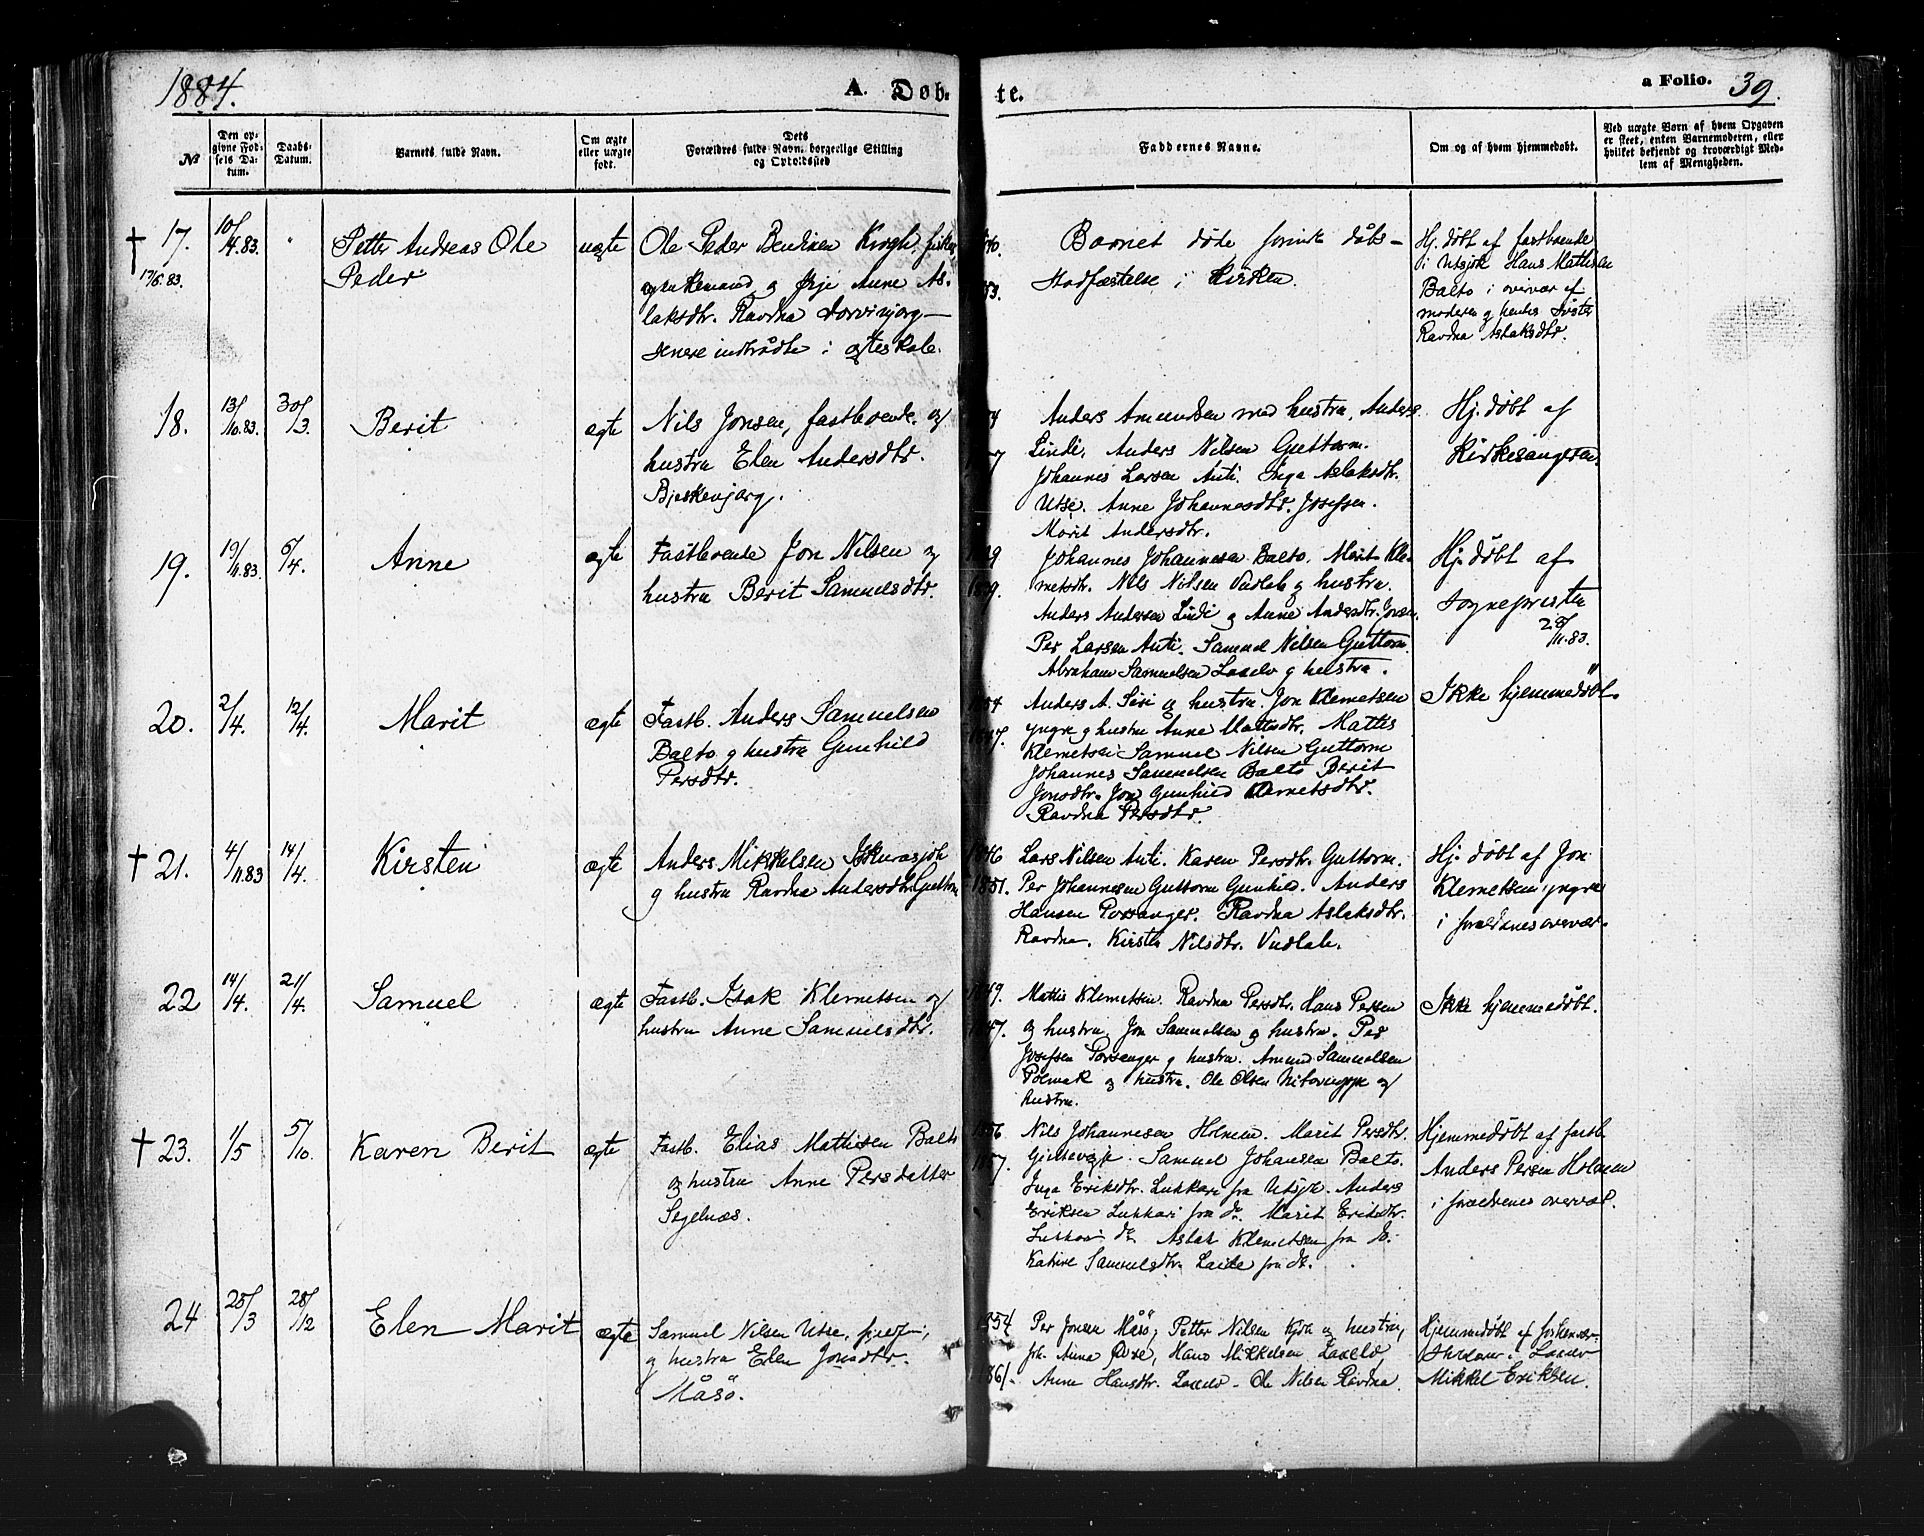 1884.
A. Døbte.
a Folio. 39.
№
Den opgivne Fødsels Datum.
Daabs-Datum.
Barnets fulde Navn.
Om ægte eller uægte født.
Dets Forældres fulde Navn, borgerlige Stilling og Opholdssted
Faddernes Navne.
Om og af hvem hjemmedøbt.
Ved uægte Børn af hvem Opgaven er skeet, enten Barnemoderen, eller hvilket bekjendt og troværdigt Medlem af Menigheden.
† 17.
10/4.83.
"
Petter Andreas Ole
Peder
uægte
Ole Peder Bendixen Krogh, fisker,
enkemand og Anne As-
laksdtr. Ravdna
senere indtrådte i ægteskab.
Barnet døde forinden dåbs-
Stadfæstelse i Kirken.
Hj. døbt af fastboende
i Utsjok Hans Mathisen
Balto i overvær af
moderen og hendes Søster
Ravdna Aslaksdtr.
18.
13/10.83.
30/3.
Berit
ægte
Nils Jonsen, fastboende, og
hustru Elen Andersdtr.
Anders Amundsen med hustru, Anders
Lindi, Anders Nilsen Guttorm.
Johannes Larsen Anti. Inga Aslaksdtr.
Utse. Anne Johannesdtr. Josefsen.
Marit Andersdtr.
Hj. døbt af
Kirkesangeren.
19.
19/11.83.
6/4.
Anne
ægte
Fastboende Jon Nilsen og
hustru Berit Samuelsdtr.
Johannes Johannesen Balto. Marit Kle-
metsdtr. Nils Nilsen Vudlab og hustru.
Anders Andersen Lindi og Anne Andersdtr. Jonsen.
Per Larsen Anti. Samuel Nilsen Guttorm.
Abraham Samuelsen Laxelv og hustru.
Hj. døbt af
Sognepresten
28/11.83.
20.
2/4.
12/4.
Marit
ægte
Fastb. Anders Samuelsen
Balto og hustru Gunhild
Persdtr.
Anders A. Siri og hustru. Jon Klemetsen
yngre og hustru Anne Mattisdtr. Mattis
Klemetsen Samuel Nilsen Guttorm
Johannes Samuelsen Balto Berit
Jonsdtr. Jon Gunhild Klemetsdtr.
Ravdna Persdtr.
Ikke hjemmedøbt.
† 21.
4/11.83
14/4.
Kirsten
ægte
Anders Mikkelsen
og hustru Ravdna Andersdtr. Guttorm
1846
1851.
Lars Nilsen Anti. Karen Persdtr. Guttorm.
Per Johannesen Guttorm Gunhild. Anders
Hansen Porsanger. Ravdna Aslaksdtr.
Ravdna. Kirsten Nilsdtr. Vudlab.
Hj. døbt af Jon
Klemetsen yngre
i forældrenes overvær.
22
14/4.
21/4.
Samuel
ægte
Fastb. Isak Klemetsen og
hustru Anne Samuelsdtr.
Mattis Klemetsen. Ravdna Persdtr. Hans Persen
og hustru. Jon Samuelsen og hustru. Per
Josefsen Porsanger og hustru. Amund Samuelsen
Polmak og hustru. Ole Olsen og
hustru.
Ikke hjemmedøbt.
† 23.
1/5
5/10.
Karen Berit
ægte
Fastb. Elias Mathisen Balto
og hustru Anne Persdatter
Segelnæs.
Nils Johannesen Holmen. Marit Persdtr.
Samuel Johansen Balto.
Inga Eriksdtr. Lukkari fra Utsjok. Anders
Eriksen Lukkari fra do. Marit Eriksdtr.
Lukkari do Aslak Klemetsen fra do.
Katrine Samuelsdtr. fra do.
Hjemmedøbt af fastb.
Anders Persen Holmen
i forældrenes overvær.
24
25/3
28/12
Elen Marit
ægte
Samuel Nilsen Utse,
og hustru Elen Jonsdtr.
Måsø.
Per Jonsen Måsø, Petter Nilsen og hustru,
Hans Mikkelsen Laxelv,
Anne Hansdtr. Laxelv - Ole Nilsen Ravdna.
Hjemmedøbt af
i Laxelv
Mikkel Eriksen.